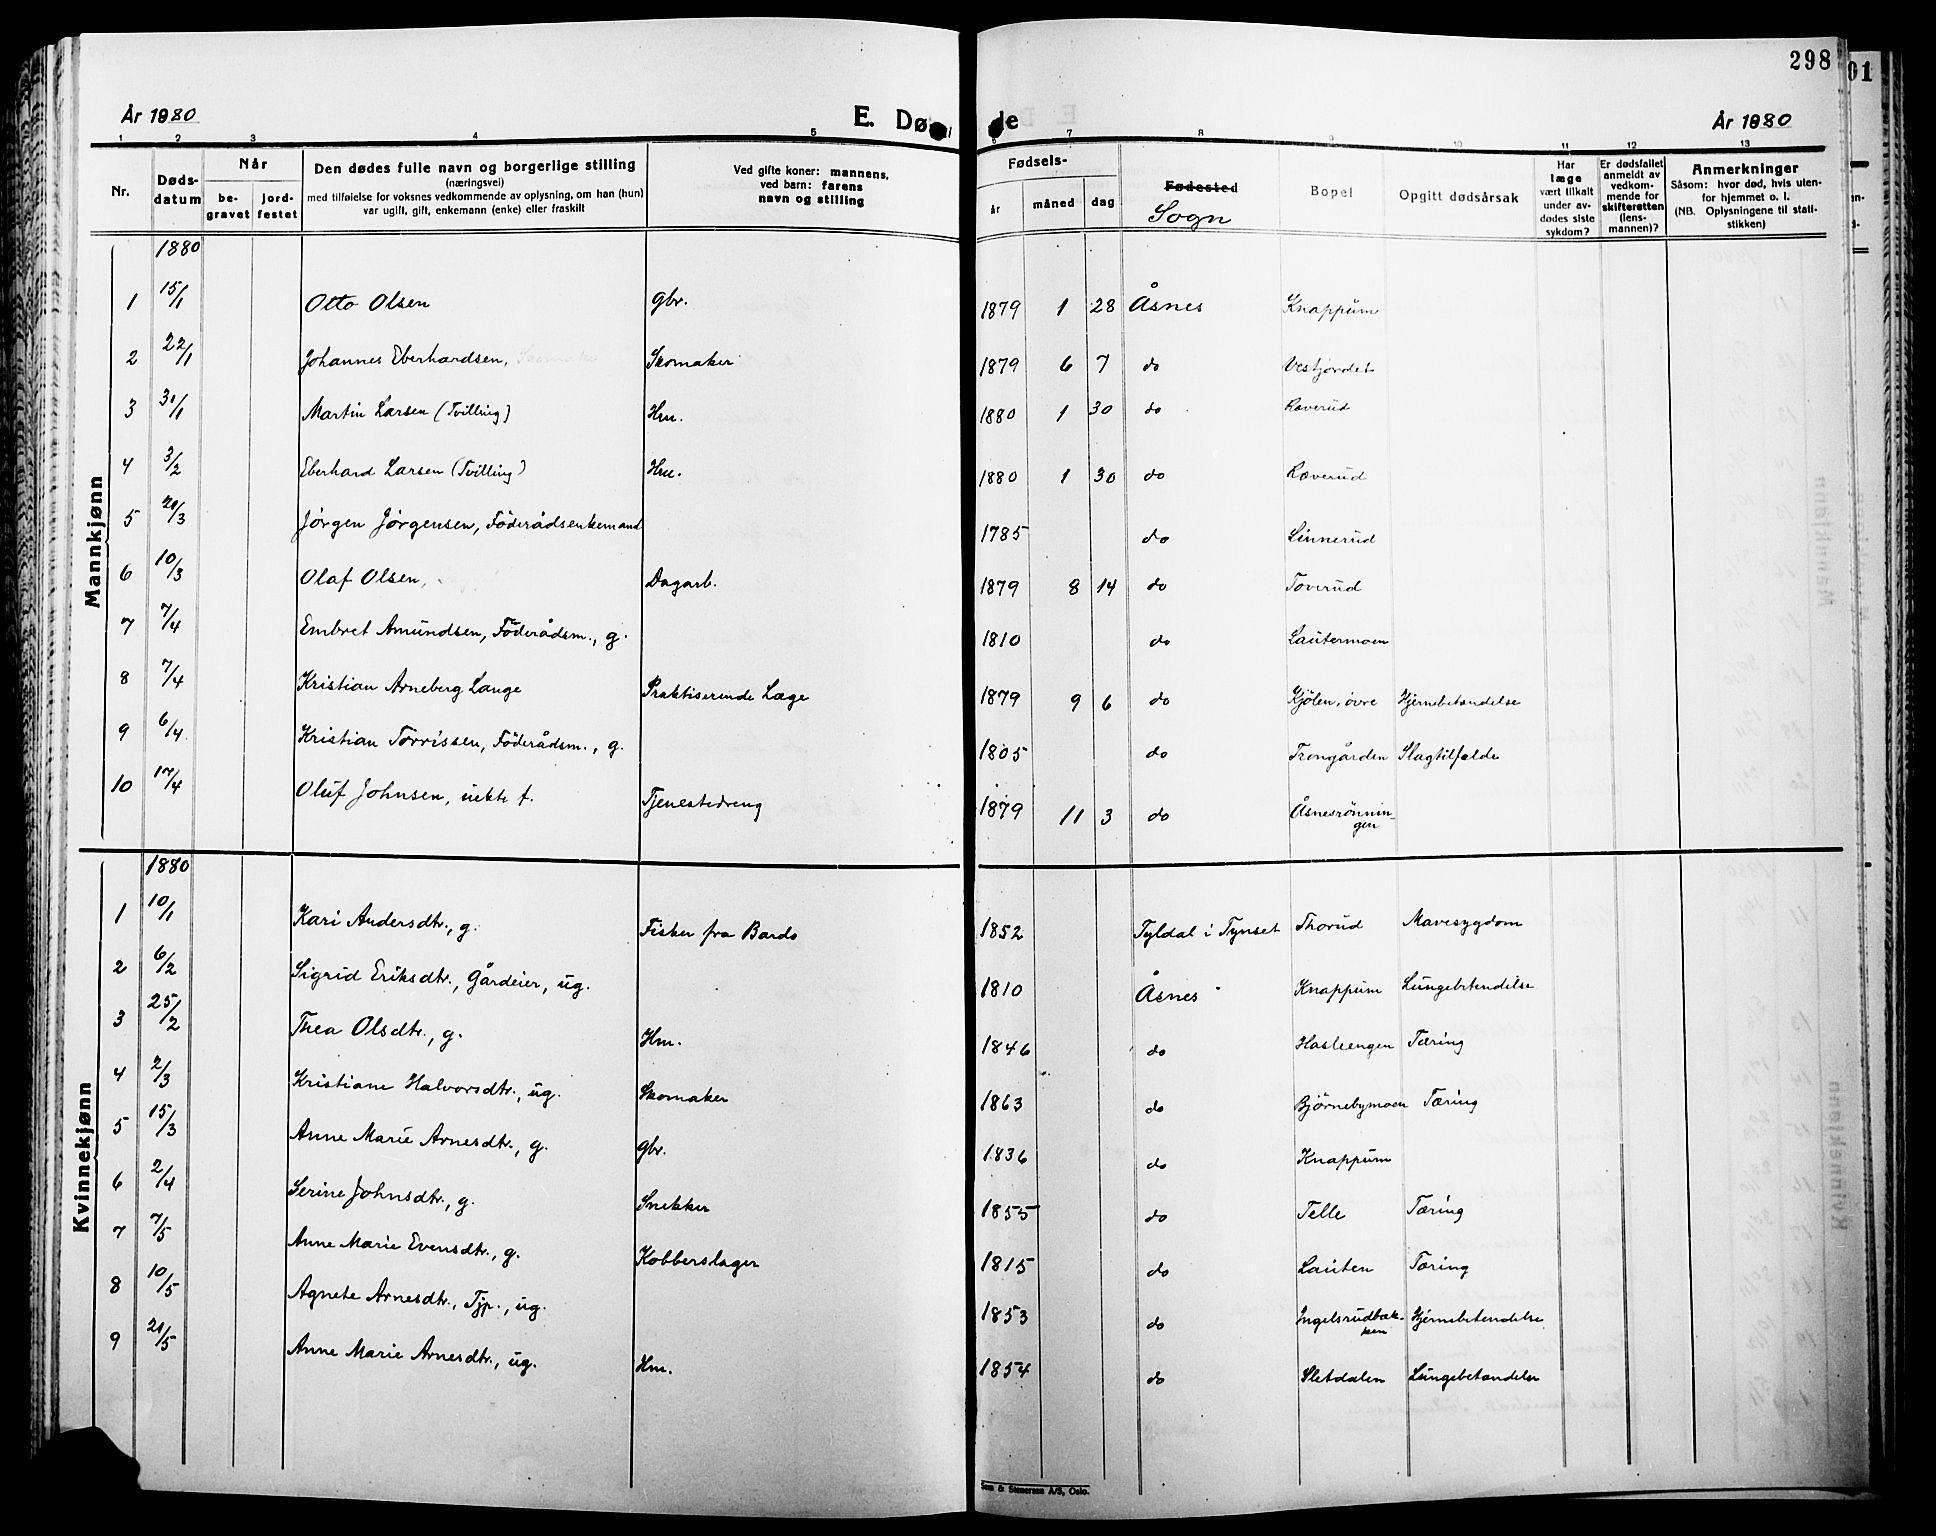 298
01
År 1880
E. Dø
de
År 1880
1 2 3 4 5 7 8 9 10 11 12 13
Nr.
Døds-
datum
Når
be-
gravet
jord-
festet
Den dødes fulle navn og borgerlige stilling
(næringsvei)
med tilføielse for voksnes vedkommende av oplysning, om han (hun)
var ugift, gift, enkemann (enke) eller fraskilt
Ved gifte koner: mannens,
ved barn: farens
navn og stilling
Fødsels-
år måned dag
Fødested
Sogn
Bopel
Opgitt dødsårsak
Har
læge
vært tilkalt
under av-
dødes siste
sykdom?
Er dødsfallet
anmeldt av
vedkom-
mende for
skifteretten
(lens-
mannen)?
Anmerkninger
Såsom: hvor død, hvis uten-
for hjemmet o. l.
(NB. Oplysningene til stati-
stikken)
Mannkjønn
1880
1 15/1 Otto Olsen gbr. 1879 1 28 Åsnes Knappum
2 22/1 Johannes Eberhardsen, Skomaker Skomaker 1879 6 7 do Vestjordet
3 31/1 Martin Larsen (Tvilling) Hm. 1880 1 30 do Ræverud
4 3/2 Eberhard Larsen (Tvilling) Hm. 1880 1 30 do Ræverud
5 21/3 Jørgen Jørgensen, Föderådsenkemand 1785 do Linnerud
6 10/3 Olaf Olsen, Dagarb. 1879 8 14 do Toverud
7 7/4 Embret Amundsen, Föderådsm., g. 1810 do Lautermoen
8 7/4 Kristian Arneberg Lange Praktiserende Læge 1879 9 6 do Kjölen, övre Hjernebetændelse
9 6/4 Kristian Torrissen, Föderådsm., g. 1805 do Trongården Slagtilfælde
10 17/4 Oluf Johnsen, uekte f. Tjenestedreng 1879 11 3 do Åsnesrönnin-
gen
Kvinnekjønn
1880
1 10/1 Kari Andersdtr., g. Fisker fra Bardo 1852 Tyldal i Tynset Thorud Mavesygdom
2 6/2 Sigrid Eriksdtr., Gårdeier, ug. 1810 Åsnes Knappum Lungebetendelse
3 25/2 Thea Olsdtr., g. Hm. 1846 do Hasleengen Tæring
4 2/3 Kristiane Halvorsdtr., ug. Skomaker 1863 do Bjørnebymoen Tæring
5 15/3 Anne Marie Arnesdtr., g. gbr. 1836 do Knappum
6 2/4 Serine Johnsdtr., g. Snekker 1855 do Telle Tæring
7 7/5 Anne Marie Evensdtr., g. Kobberslager 1815 do Lauten Tæring
8 10/5 Agnete Arnesdtr., Tjp., ug. 1853 do Ingelsrudbak-
ken Hjernebetendelse
9 21/5 Anne Marie Arnesdtr., ug. Hm. 1854 do Sletdalen Lungebetændelse
Sem & Stenersen A/S, Oslo.